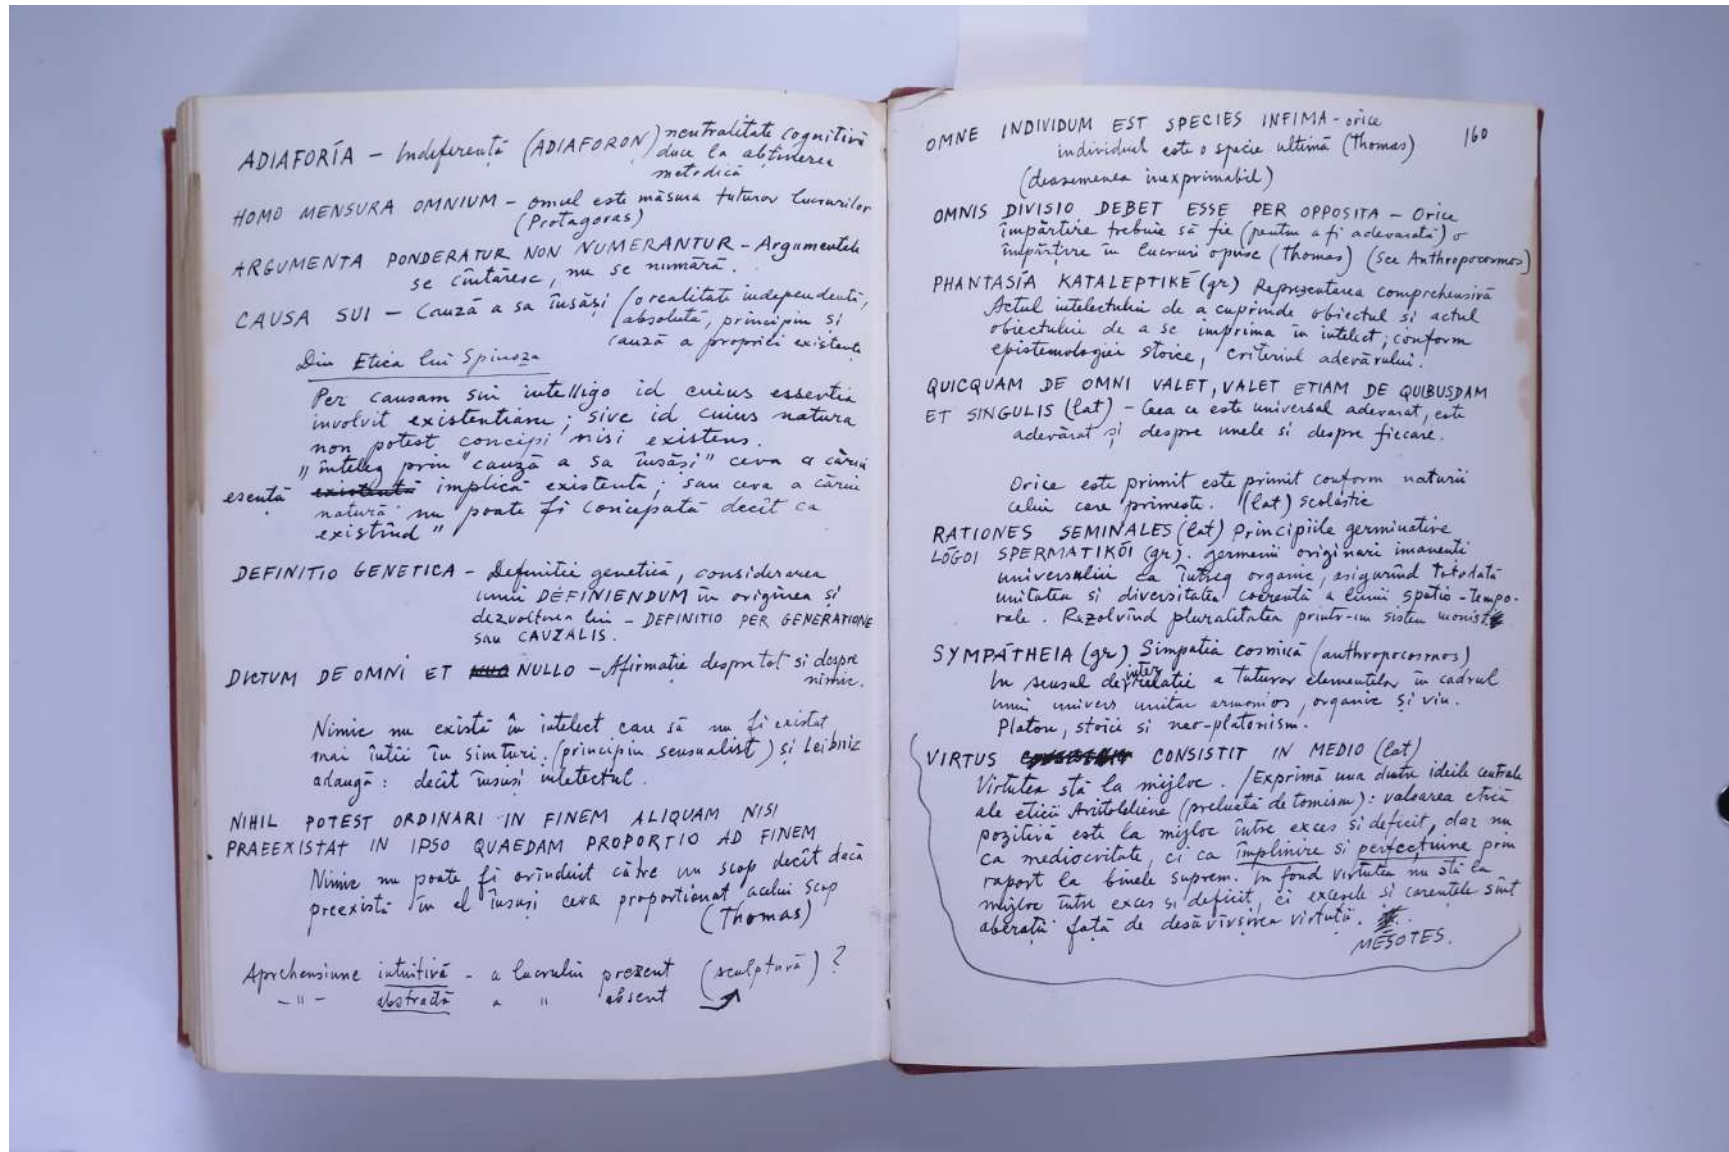 ADIAFORÍA – Indiferență (ADIAFORON) neutralitate cognitivă
duce la abținerea
metodică
HOMO MENSURA OMNIUM – omul este măsura tuturor lucrurilor
(Protagoras)
ARGUMENTA PONDERATUR NON NUMERANTUR – Argumentele
se cîntăresc, nu se numără.
CAUSA SUI – Cauză a sa însăși (o realitate independentă,
absolută, principiu și
cauză a propriei existențe
Din Etica lui Spinoza
Per causam sui intelligo id cuius essentia
involvit existentiam; sive id cuius natura
non potest concipi nisi existens.
"înteleg prin "cauză a sa însăși" ceva a cărui
esență implică existenta; sau ceva a cărui
natură nu poate fi concepută decît ca
existînd"
DEFINITIO GENETICA – Definitie genetică, considerarea
unui DEFINIENDUM în originea și
dezvoltarea lui – DEFINITIO PER GENERATIONE
sau CAUZALIS.
DICTUM DE OMNI ET NULLO – Afirmație despre tot si despre
nimic.
Nimic nu există în intelect care să nu fi existat
mai întîi în simturi. (principiu sensualist) și Leibniz
adaugă: decît însuși intelectul.
NIHIL POTEST ORDINARI IN FINEM ALIQUAM NISI
PRAEEXISTAT IN IPSO QUAEDAM PROPORTIO AD FINEM
Nimic nu poate fi orînduit către un scop decît dacă
preexistă în el însuși ceva proportionat acelui scop
(Thomas)
Aprehensiune intuitivă – a lucrului prezent (sculptură) ?
– " – abstractă a " absent
160
OMNE INDIVIDUM EST SPECIES INFIMA – orice
individual este o specie ultimă (Thomas)
(deasemenea inexprimabil)
OMNIS DIVISIO DEBET ESSE PER OPPOSITA – Orice
împărtire trebuie să fie (pentru a fi adevarată) o
împărtire în lucruri opuse (Thomas) (See Anthropocosmos)
PHANTASÍA KATALEPTIKÉ (gr) Reprezentarea comprehensivă
Actul intelectului de a cuprinde obiectul si actul
obiectului de a se imprima în intelect; conform
epistemologiei stoice, criteriul adevărului.
QUICQUAM DE OMNI VALET, VALET ETIAM DE QUIBUSDAM
ET SINGULIS (lat) – Ceea ce este universal adevarat, este
adevărat și despre unele si despre fiecare.
Orice este primit este primit conform naturii
celui care primește. (lat) scolastic
RATIONES SEMINALES (lat) Principiile germinative
LÓGOI SPERMATIKÓI (gr). germenii originari imanenti
universului ca întreg organic, asigurînd totodată
unitatea si diversitatea coerentă a lumii spatio-tempo-
rale. Rezolvînd pluralitatea printr-un sistem monist
SYMPÁTHEIA (gr) Simpatia cosmică (anthropocosmos)
In sensul de interrelatie a tuturor elementelor în cadrul
unui univers unitar armonios, organic și viu.
Platon, stoici si neo-platonism.
VIRTUS CONSISTIT IN MEDIO (lat)
Virtutea stă la mijloc. /Exprimă una dintre ideile centrale
ale eticii Aristoteliene (preluată de tomism): valoarea etică
pozitivă este la mijloc între exces si deficit, dar nu
ca mediocritate, ci ca împlinire si perfecțiune prin
raport la binele suprem. In fond virtutea nu stă la
mijloc între exces si deficit, ci excesele și carențele sînt
aberații față de desăvîvșirea virtuții.
MÉSOTES.